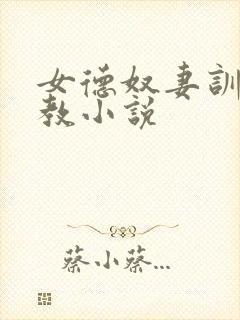 女德奴妻訓
教小説
蔡小蔡...